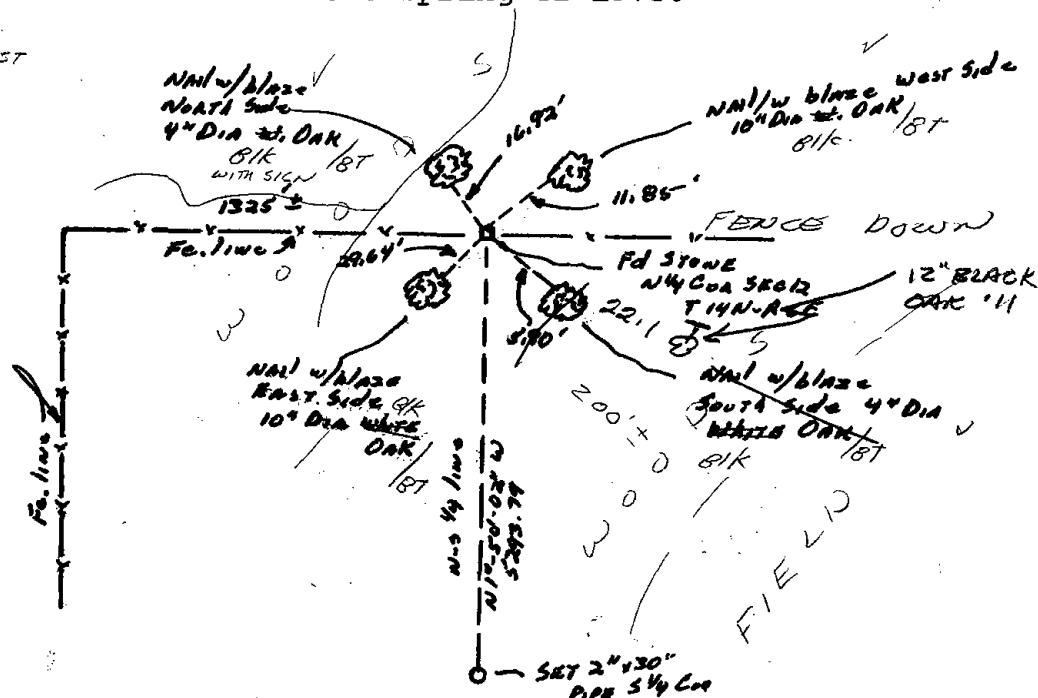 Spring
ST
NAIl w/blaze
NORTH Side
4" DIA wt. OAK /BT
Blk
WITH SIGN
1325' ±
Fe. line
16.92'
NAIl/w blaze west Side
10" Dia wt. OAK /BT
Blk.
11.85'
FENCE DOWN
29.64'
Fd STONE
N 1/4 Cor SEC 12
T 14N-R
12" BLACK
OAK '11
22.1
8.90'
S
S
NAIl w/blaze
EAST Side Blk
10" Dia WHITE
OAK
/BT
NAIl w/blaze
SOUTH Side 4" DIA
WHITE OAK /BT
Blk
200'±
WOODS
FIELD
Fe. line
N-S 1/4 line
N1°-50'-02" W
5293.79
SET 2"x30"
PIPE S 1/4 Cor